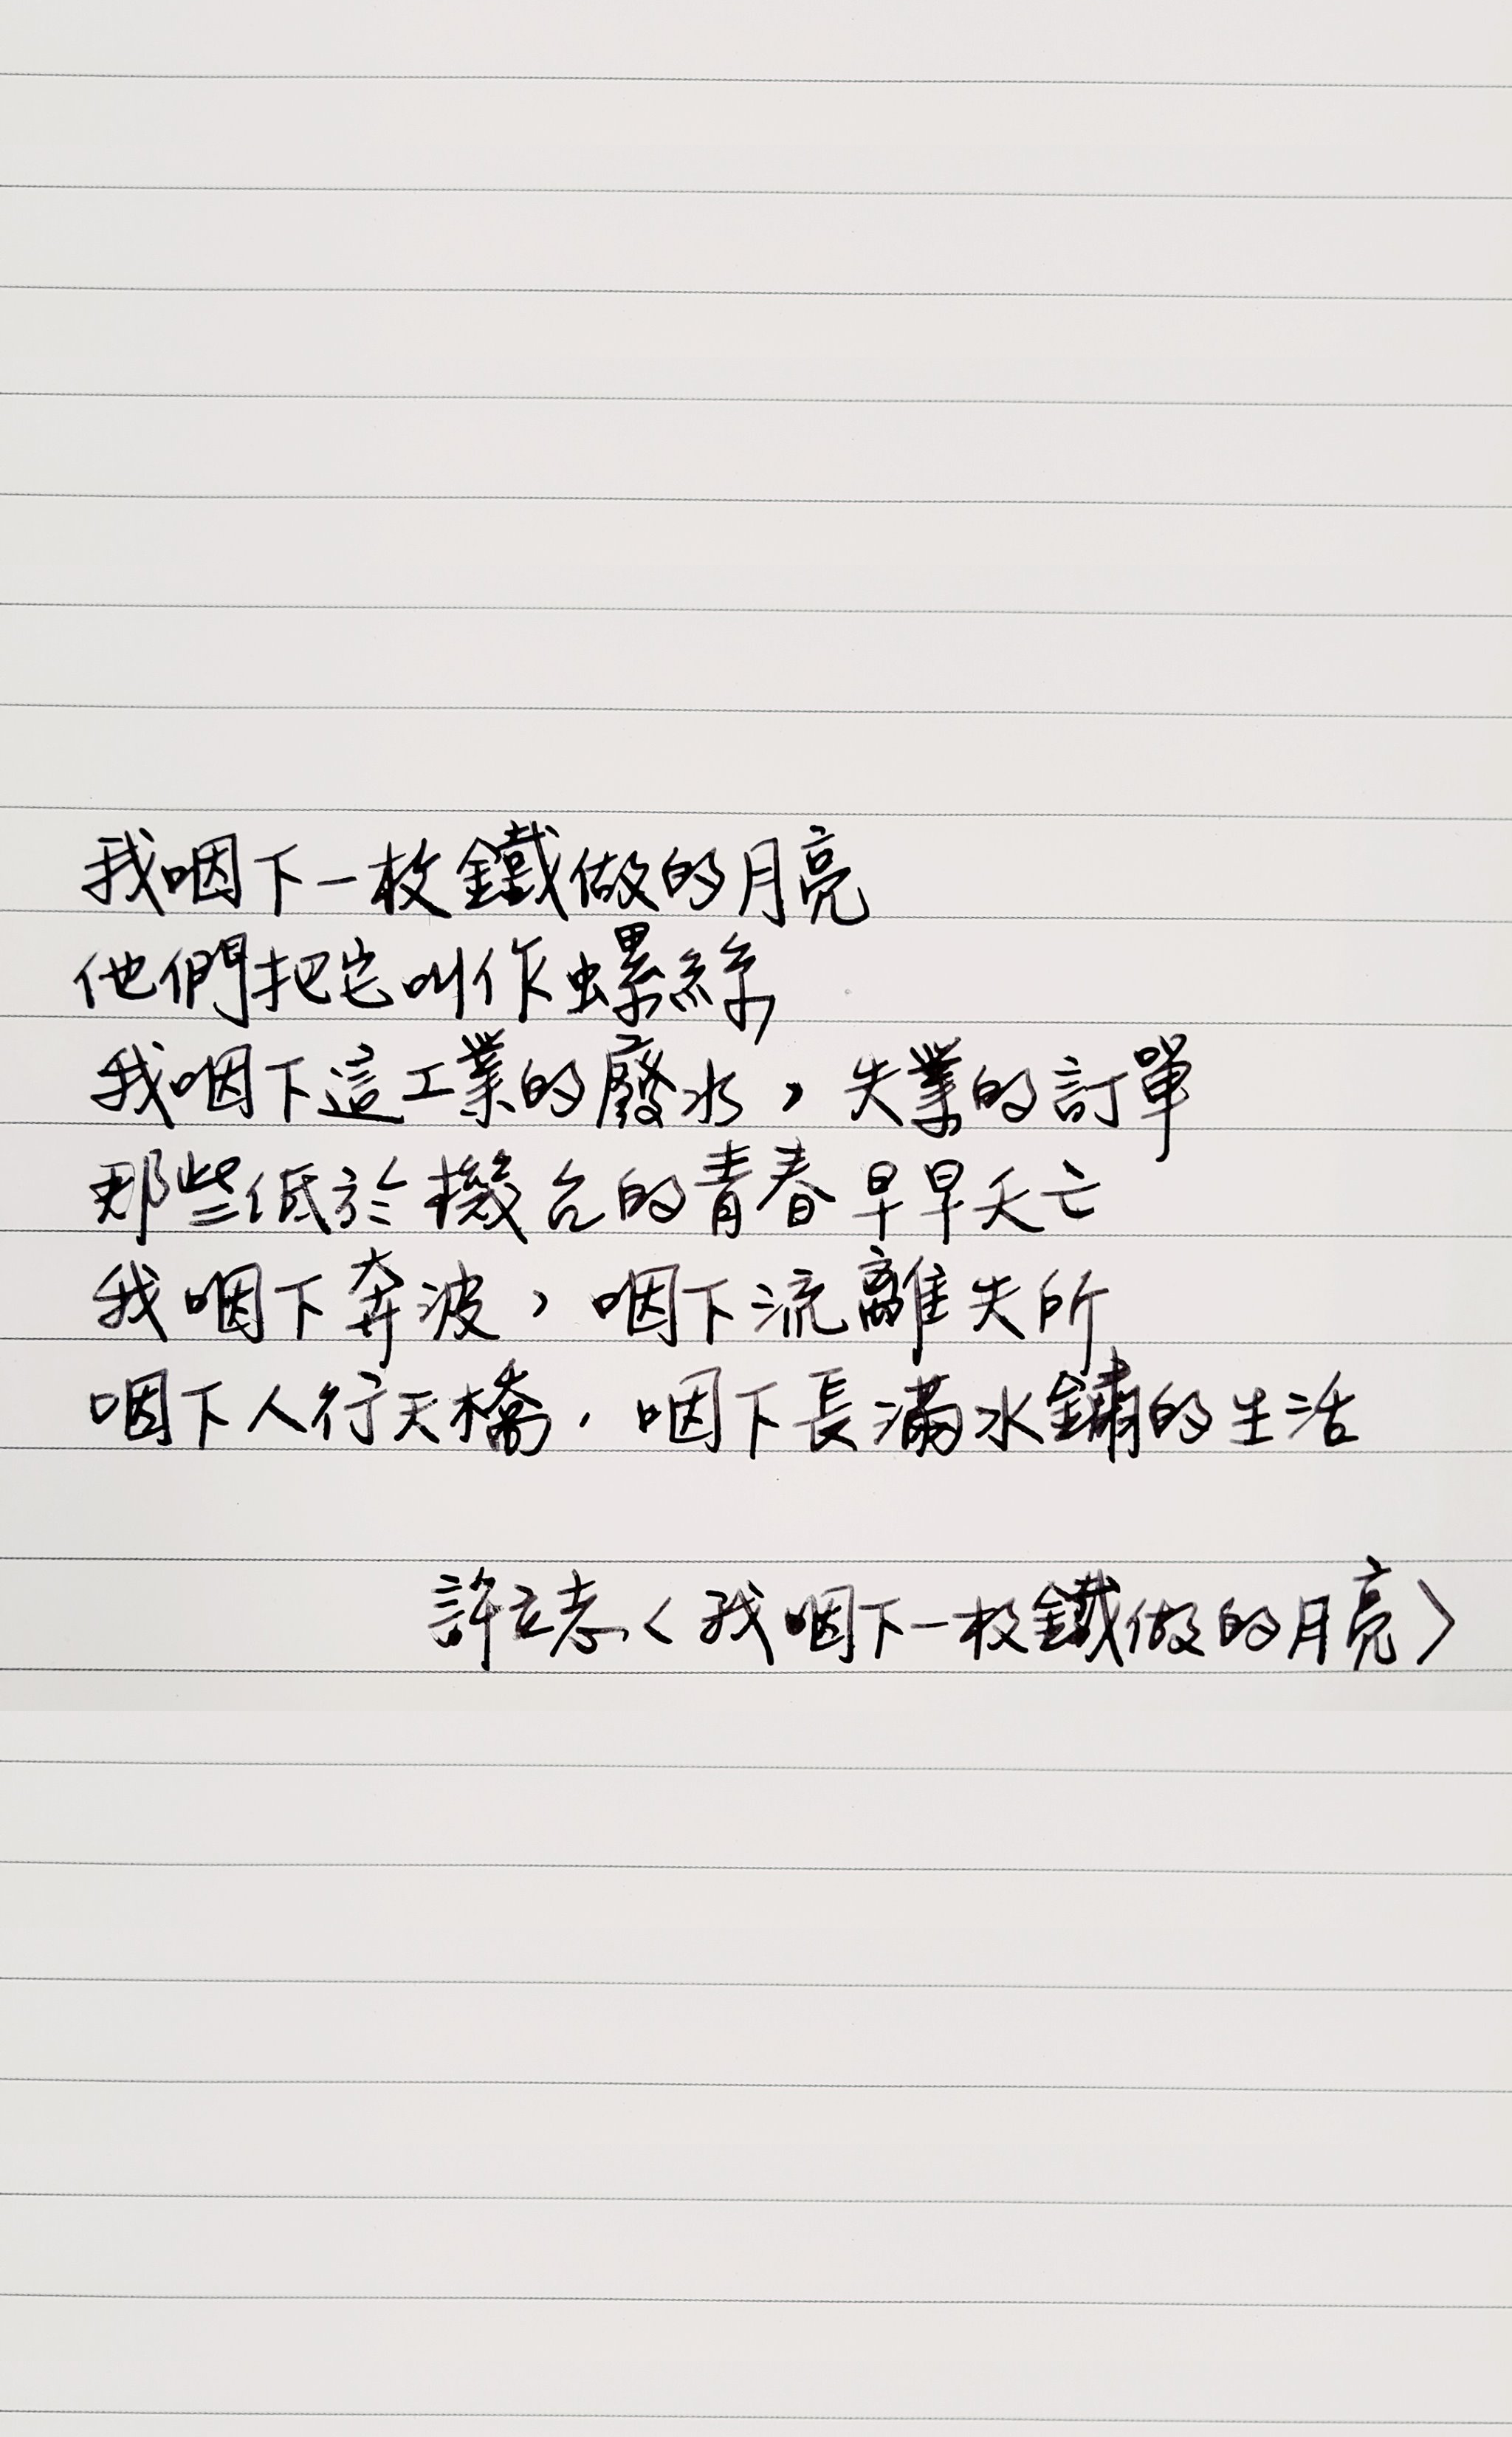 我咽下一枚鐵做的月亮
他們把它叫作螺絲
我咽下這工業的廢水，失業的訂單
那些低於機台的青春早早夭亡
我咽下奔波，咽下流離失所
咽下人行天橋，咽下長滿水鏽的生活
許立志〈我咽下一枚鐵做的月亮〉